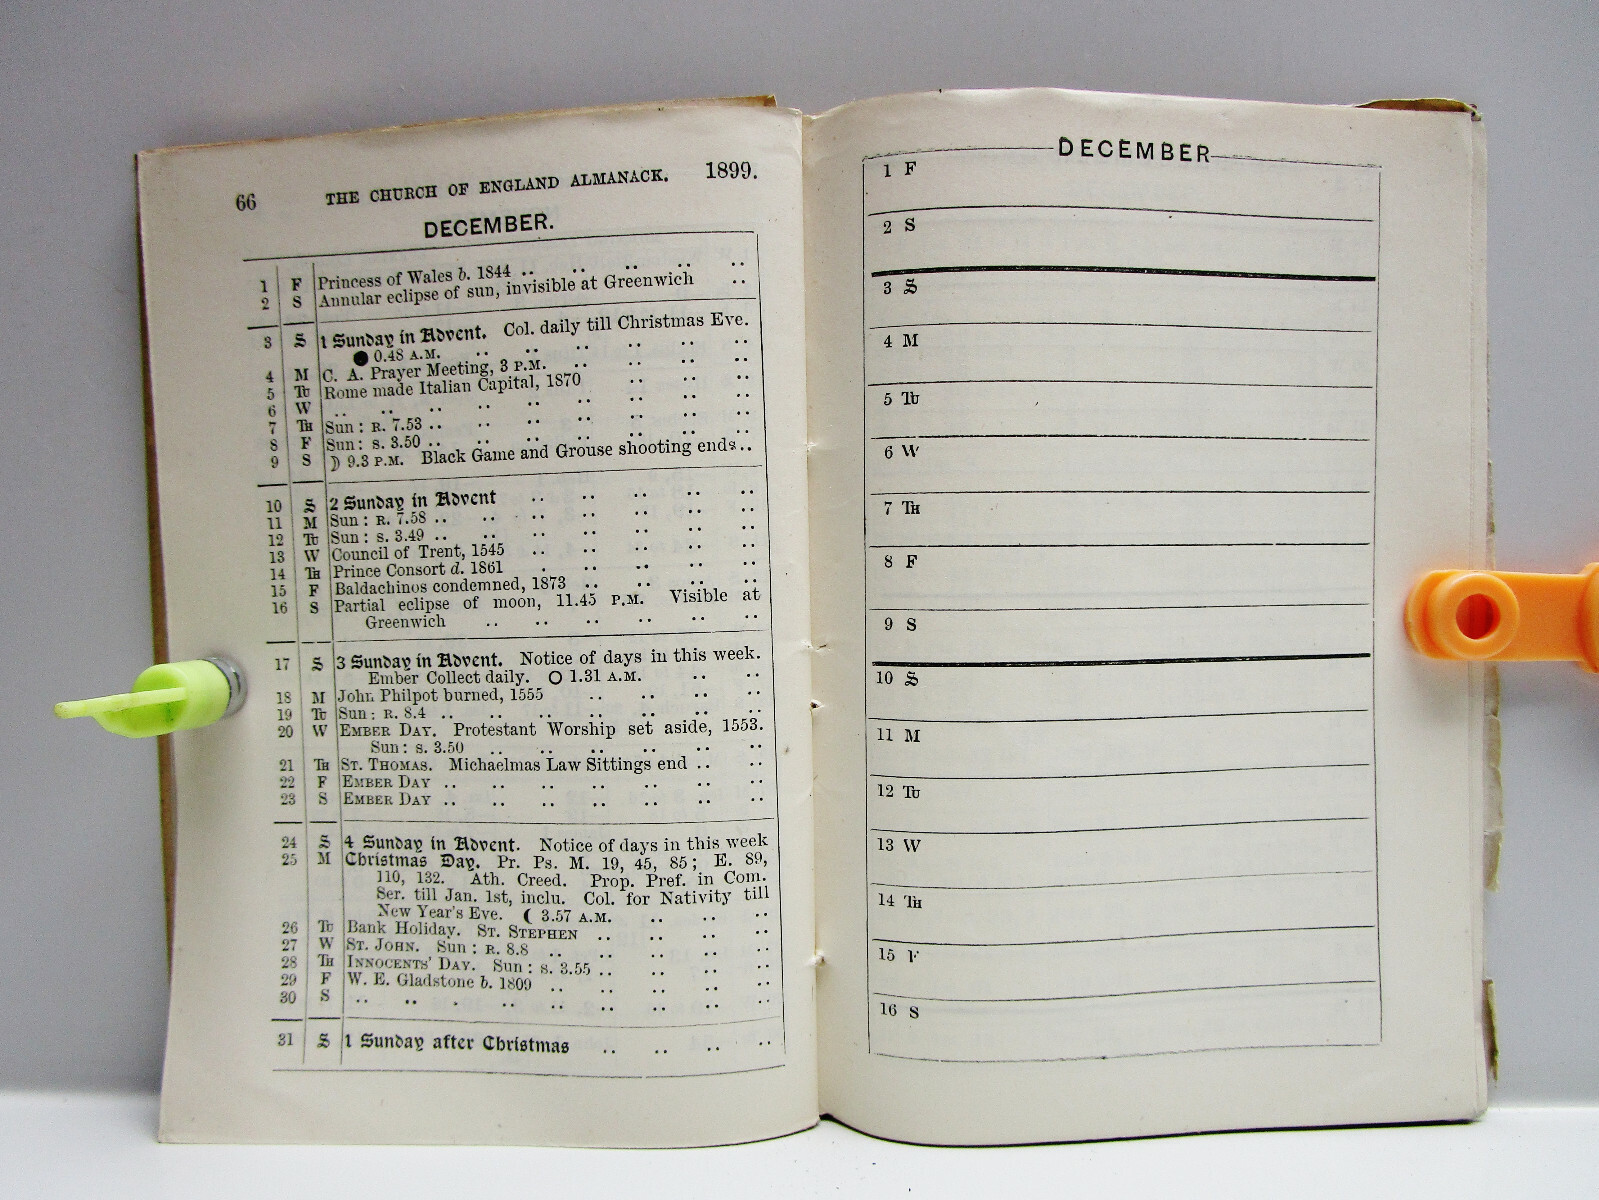 66 THE CHURCH OF ENGLAND ALMANACK. 1899.
DECEMBER.
1 F Princess of Wales b. 1844 .. .. .. .. ..
2 S Annular eclipse of sun, invisible at Greenwich ..
3 S 1 Sunday in Advent. Col. daily till Christmas Eve.
● 0.48 A.M. .. .. .. .. .. ..
4 M C. A. Prayer Meeting, 3 P.M. .. .. .. ..
5 Tu Rome made Italian Capital, 1870 .. .. ..
6 W .. .. .. .. .. .. .. .. ..
7 Th Sun: R. 7.53 .. .. .. .. .. .. ..
8 F Sun: s. 3.50 .. .. .. .. .. .. ..
9 S ☽ 9.3 P.M. Black Game and Grouse shooting ends..
10 S 2 Sunday in Advent .. .. .. .. ..
11 M Sun: R. 7.58 .. .. .. .. .. .. ..
12 Tu Sun: s. 3.49 .. .. .. .. .. .. ..
13 W Council of Trent, 1545 .. .. .. .. ..
14 Th Prince Consort d. 1861 . .. .. .. ..
15 F Baldachinos condemned, 1873 .. .. .. ..
16 S Partial eclipse of moon, 11.45 P.M. Visible at
Greenwich .. .. .. .. .. ..
17 S 3 Sunday in Advent. Notice of days in this week.
Ember Collect daily. O 1.31 A.M. .. ..
18 M John Philpot burned, 1555 .. .. .. ..
19 Tu Sun: R. 8.4 .. .. .. .. .. .. ..
20 W EMBER DAY. Protestant Worship set aside, 1553.
Sun: s. 3.50 .. .. .. .. .. ..
21 Th ST. THOMAS. Michaelmas Law Sittings end .. ..
22 F EMBER DAY .. .. .. .. .. .. ..
23 S EMBER DAY .. .. .. .. .. .. ..
24 S 4 Sunday in Advent. Notice of days in this week
25 M Christmas Day. Pr. Ps. M. 19, 45, 85; E. 89,
110, 132. Ath. Creed. Prop. Pref. in Com.
Ser. till Jan. 1st, inclu. Col. for Nativity till
New Year's Eve. ☾ 3.57 A.M. .. .. ..
26 Tu Bank Holiday. ST. STEPHEN .. .. .. ..
27 W ST. JOHN. Sun: R. 8.8 .. .. .. .. ..
28 Th INNOCENTS' DAY. Sun: s. 3.55 .. .. .. ..
29 F W. E. Gladstone b. 1809 .. .. .. .. ..
30 S .. .. . .. .. .. .. .. ..
31 S 1 Sunday after Christmas .. .. .. ..
DECEMBER
1 F
2 S
3 S
4 M
5 Tu
6 W
7 Th
8 F
9 S
10 S
11 M
12 Tu
13 W
14 Th
15 F
16 S